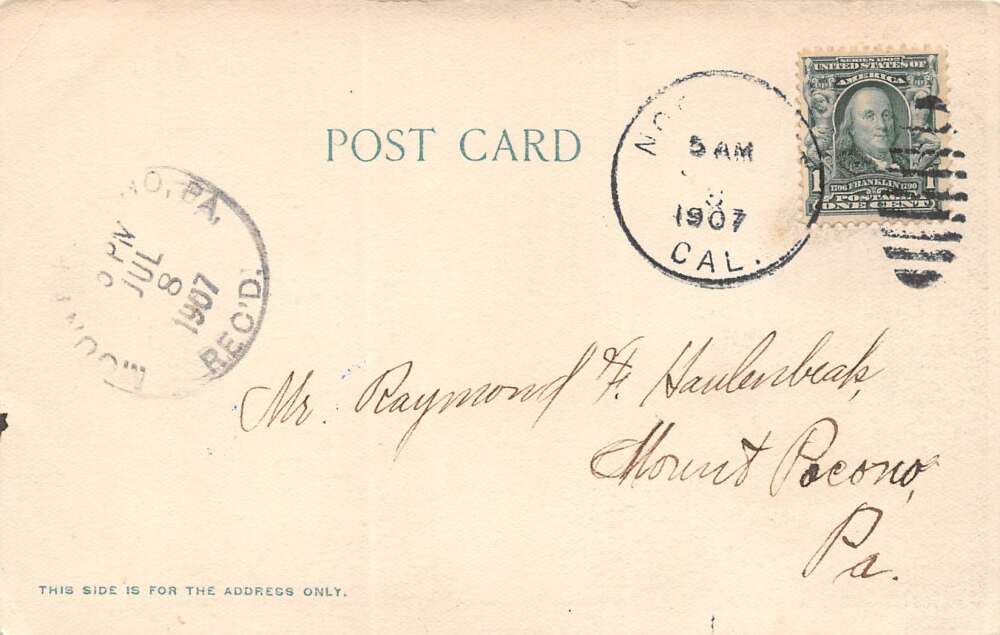 SERIES 1902
UNITED STATES OF
AMERICA
1706 FRANKLIN 1790
1 POSTAGE 1
ONE CENT
POST CARD
5 AM
1907
CAL.
NO, PA.
PM
JUL
8
1907
REC'D.
Mr. Raymond F. Haulenbeak,
Mount Pocono,
Pa.
THIS SIDE IS FOR THE ADDRESS ONLY.